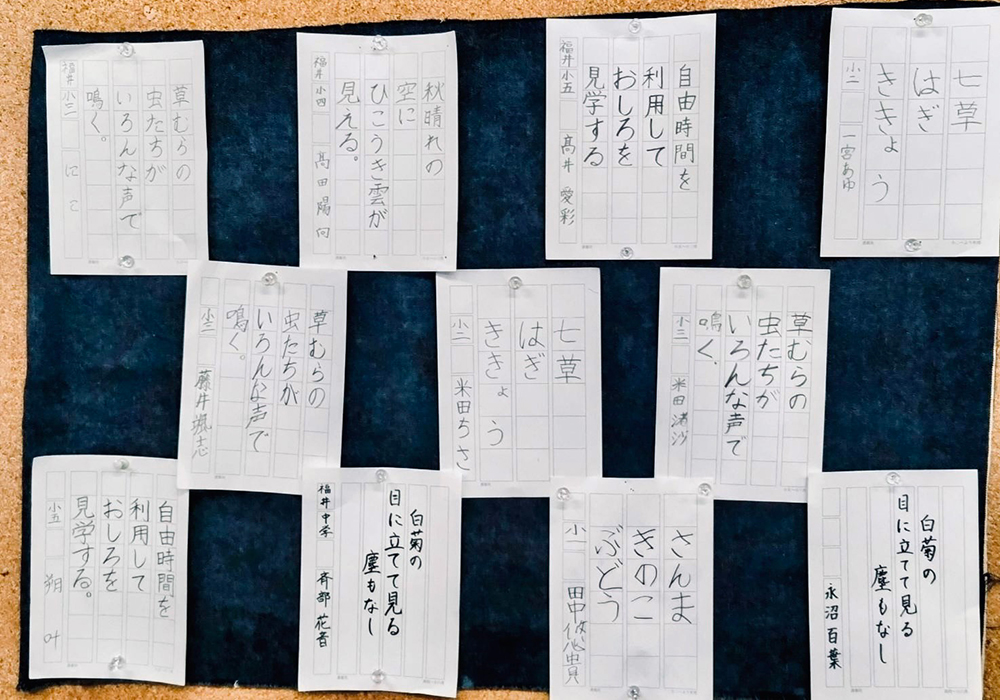 七草
はぎ
ききょう
小二 一宮あゆ
自由時間を
利用して
おしろを
見学する
福井小五 高井 愛彩
秋晴れの
空に
ひこうき雲が
見える。
福井小四 高田陽向
草むらの
虫たちが
いろんな声で
鳴く。
福井小三 にこ
草むらの
虫たちが
いろんな声で
鳴く、
小三 米田渚沙
七草
はぎ
ききょう
小二 米田ちさ
草むらの
虫たちが
いろんな声で
鳴く。
小三 藤井颯志
白菊の
目に立てて見る
塵もなし
永沼百葉
さんま
きのこ
ぶどう
小一 田中悠貴
白菊の
目に立てて見る
塵もなし
福井中学 斉部花音
自由時間を
利用して
おしろを
見学する。
小五 朔叶